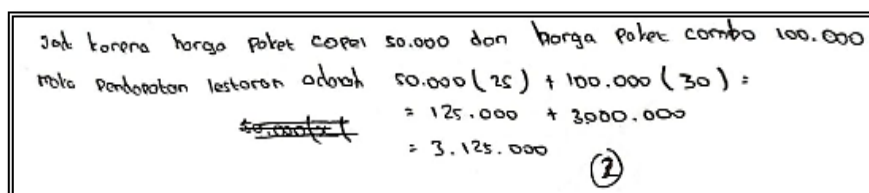 Jadi karena harga paket coper 50.000 dan harga paket combo 100.000
maka Pendapatan restoran adalah 50.000 (25) + 100.000 (30) =
= 125.000 + 3000.000
= 3.125.000
2